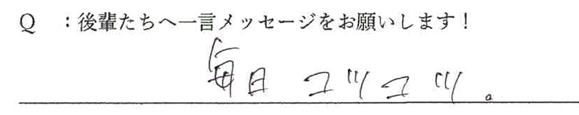 Q ：後輩たちへ一言メッセージをお願いします！
毎日コツコツ。